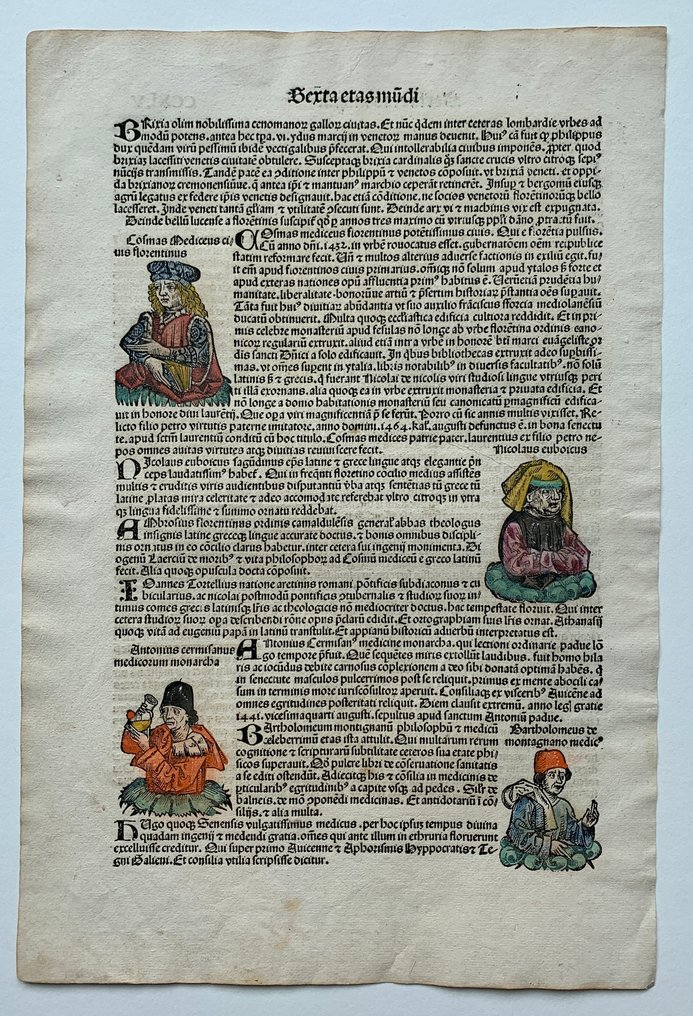 Sexta etas mũdi
BRixia olim nobilissima cenomanoꝝ galloꝝ ciuitas. Et nũc q̃dem inter ceteras lombardie vrbes ad
modũ potens. antea hec tpa. vi. ydus marcij in venetoꝝ manus deuenit. Huiꝰ cã fuit qꝫ philippus
dux quẽdam virũ pessimũ ibidẽ vectigalibus p̃fecerat. Qui intollerabilia ciuibus imponẽs. ꝓpter quod
brixiãi lacessiti venetis ciuitatẽ obtulere. Susceptaqꝫ brixia cardinalis q̃s sancte crucis vltro citroqꝫ sepiꝰ
nũcijs transmissis. Tandẽ pacẽ ea ↄditione inter philippũ ⁊ venetos cõposuit. vt brixiã veneti. et oppi
da brixianoꝝ cremonẽsiũue. q̃ antea ip̃i ⁊ mantuanꝰ marchio ceperãt retinerẽt. Insuꝑ ⁊ bergomũ eiusqꝫ
agrũ legatus ex federe ip̃is venetis designauit. hac etiã cõditione. ne socios venetoꝝ florẽtinorũqꝫ bello
lacesseret. Inde veneti tantã gl̃iam ⁊ vtilitatẽ ↄsecuti sunt. Deinde arx vi ⁊ machinis vix est expugnata.
Deinde bellũ lucense a florẽtinis suscipit̃ qd̃ ꝑ annos tres maximo cũ vtriusqꝫ pp̃li dãno ꝓtractũ fuit.
Cosmas Mediceus ci
uis florentinus
COsmas mediceus florentinus potẽtissimus ciuis. Qui e florẽtia pulsus.
Cũ anno dñi. 1432. in vrbẽ reuocatus esset. gubernatõem oẽm reipublice
statim reformare fecit. Vñ ⁊ multos alterius aduerse factionis in exiliũ egit. fu
it em̃ apud florentinos ciuis primarius. om̃iqꝫ nõ solum apud ytalos s̃ forte et
apud exteras nationes opũ affluentia primꝰ habitus ẽ. Uerũetiã prudẽtia hu
manitate. liberalitate. bonorũue artiũ ⁊ p̃sertim historiaꝝ p̃stantia oẽs suꝑauit.
Tãta fuit huiꝰ diuitiaꝝ abũdantia vt suo auxilio frãciscus sfforcia mediolanẽsiũ
ducatũ obtinuerit. Multa quoqꝫ ecclesiastica edificia cultiora reddidit. Et in pri
mis celebre monasteriũ apud fesulas nõ longe ab vrbe florẽtina ordinis cano-
nicoꝝ regulariũ extruxit. aliud etiã intra vrbẽ in honorẽ bt̃i marci euãgeliste oꝝ
dis sancti Dñici a solo edificauit. In q̃bus bibliothecas extruxit adeo suꝑbissi-
mas. vt om̃es suꝑent in ytalia. libris notabilibꝰ in diuersis facultatibꝰ. nõ solũ
latinis s̃ ⁊ grecis. q̃ fuerant Nicolai de nicolis viri studiosi lingue vtriusqꝫ peri
ti illã exornans. alia quoqꝫ ea in vrbe extruxit monasteria ⁊ priuata edificia. Et
nõ longe a domo habitationis monasteriũ seu canonicatũ ꝑmagnificũ edifica-
uit in honore diui laurẽtij. Que oꝑa viri magnificentiã p̃ se ferũt. Porro cũ sic annis multis vixisset. Re-
licto filio petro virtutis paterne imitatore. anno domini. 1464. kal. augusti defunctus ẽ. in bona senectu
te. apud sctm̃ laurentiũ conditũ cũ hoc titulo. Cosmas medices patrie pater. laurentius ex filio petro ne-
pos omnes auitas virtutes atqꝫ diuitias reuiuiscere fecit.
Nicolaus euboicus
NIcolaus euboicus sagũdinus ep̃s latine ⁊ grece lingue atqꝫ elegantie p̃n
ceps laudatissimꝰ habet̃. Qui in freq̃nti florẽtino cõcilio medius assistẽs
multis ⁊ eruditis viris audientibus disputantiũ v̈ba atqꝫ sentẽtias tũ grece tũ
latine ꝓlatas mira celeritate ⁊ adeo accommodate referebat vltro citroqꝫ in vtra
qꝫ lingua fidelissime ⁊ summo ornatu reddebat.
AMbrosius florentinus ordinis camaldulẽsis general̃ abbas theologus
insignis latine greceqꝫ lingue accurate doctus. ⁊ bonis omnibus discipli-
nis ornatus in eo cõcilio clarus habetur. inter cetera sui ingenij monimenta. Di
ogenũ Laerciũ de moribꝰ ⁊ vita philosophoꝝ ad Cosmũ mediceũ e greco latinũ
fecit. Alia quoqꝫ opuscula docta cõposuit.
IOannes Tortellius natione aretinus romani põtificis subdiaconus ⁊ cu
bicularius. ac nicolai postmodũ pontificis ↄtubernalis ⁊ studioꝝ suoꝝ in/
timus comes grecis latinisqꝫ lr̃is ac theologicis nõ mediocriter doctus. hac tempestate floruit. Qui inter
cetera studioꝝ suoꝝ oꝑa describendi rõne opus p̃clarũ edidit. Et ortographiam suis lr̃is ornat. Athanasij
quoqꝫ vitã ad eugeniũ papã in latinũ transtulit. Et appianũ historicũ aduerbũ interpretatus est.
Antonius cermisanus
medicorum monarcha
ANtonius Cermisanꝰ medicine monarcha. qui lectioni ordinarie padue lõ
go tempore p̃fuit. Quẽ seq̃ntes miris extollũt laudibus. fuit homo hila
ris ac iocũdus debite carnosus coplexionem a deo sibi donatã optimã habẽs. q̃
in senectute masculos pulcerrimos post se reliquit. primus ex mente abocili ca/
sum in terminis more iuriscõsultoꝝ aperuit. Consiliaqꝫ ex visceribꝰ Auicẽne ad
omnes egritudines posteritati reliquit. Diem clausit extremũ. anno leg̃l gratie
1441. vicesimaquarti augusti. sepultus apud sanctum Antoniũ padue.
Bartholomeus de
montagnano medicꝰ
BArtholomeum montignanũ philosophũ ⁊ medicũ
celeberrimũ etas ista attulit. Qui multarum rerum
cognitione ⁊ scripturarũ subtilitate ceteros sua etate phi/
sicos superauit. Qd̃ pulcre libri de cõseruatione sanitatis
a se editi ostendũt. Adiecitqꝫ his ⁊ cõsilia in medicinis de
ꝑticularibꝰ egritudinibꝰ a capite vsqꝫ ad pedes. Silr̃ de
balneis. de mõ ↄponẽdi medicinas. Et antidotariũ ĩ cõ
silijs. ⁊ alia multa.
HUgo quoqꝫ Senensis vulgatissimus medicus. per hoc ipsus tempus diuina
quadam ingenij ⁊ medendi gratia. om̃es qui ante illum in ethruria floruerunt
excelluisse creditur. Qui super primo Auicenne ⁊ Aphorismis Hyppocratis ⁊ Te-
gni Galieni. Et consilia vtilia scripsisse dicitur.